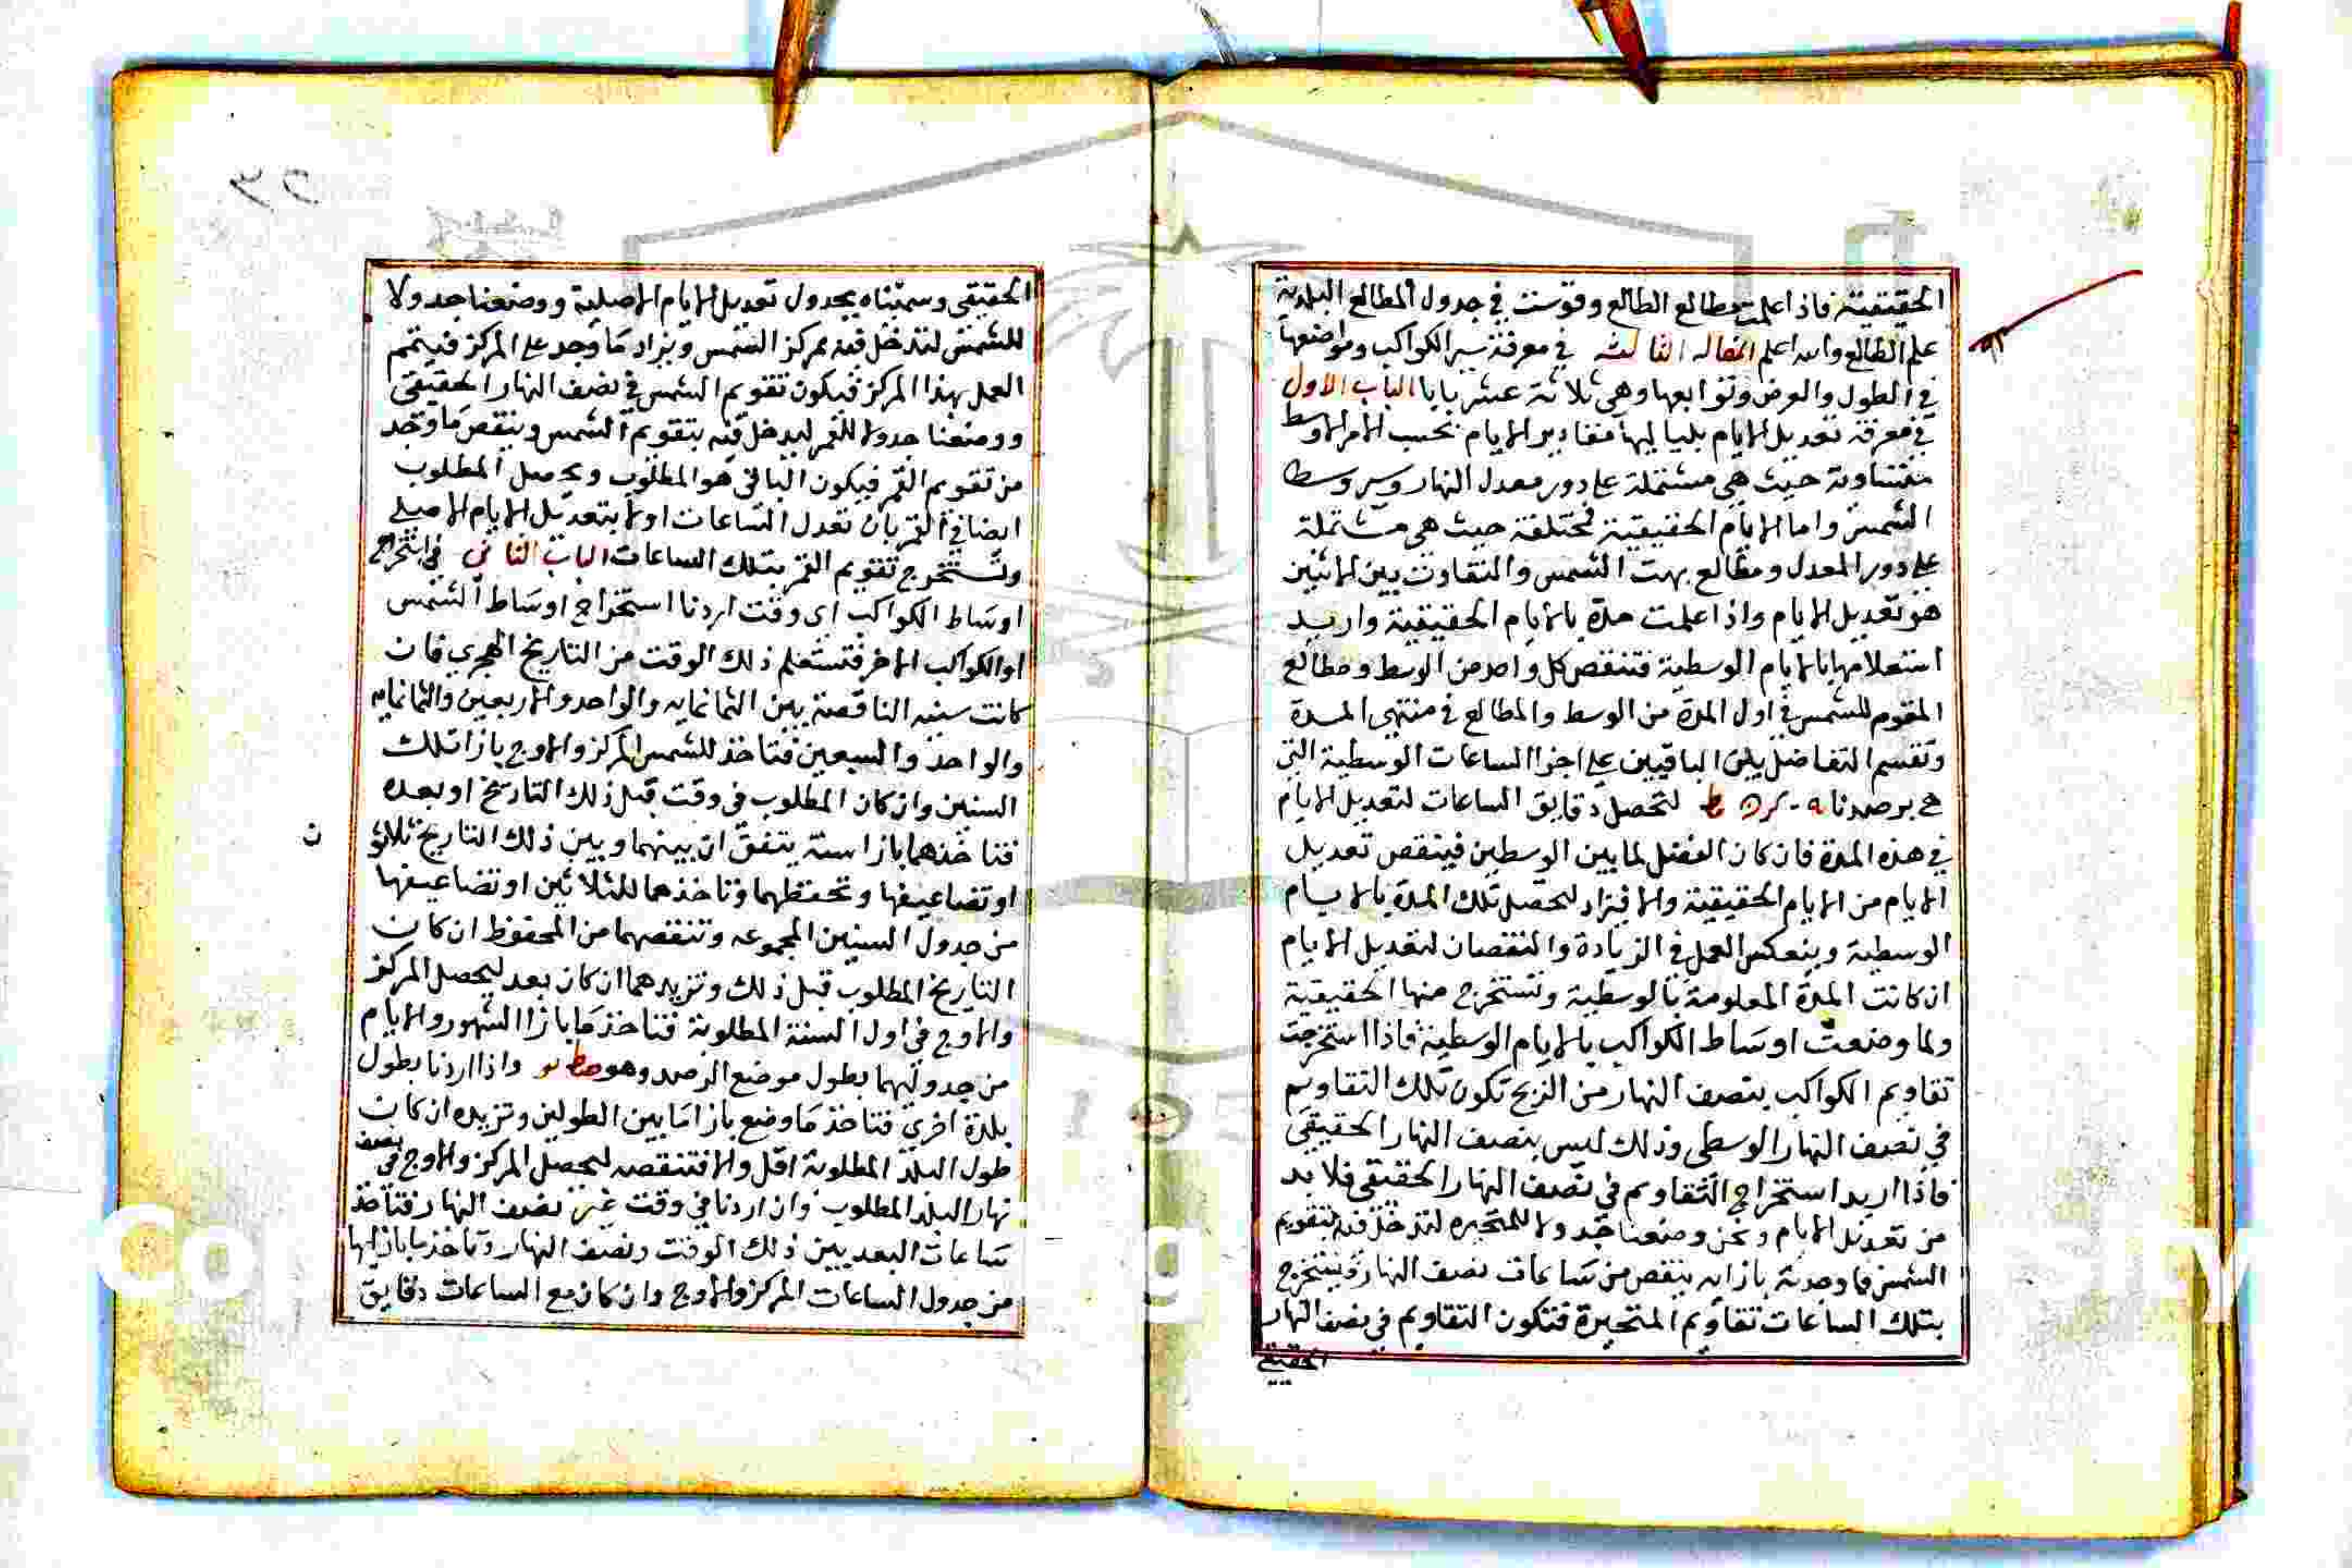 الحقيقية فاذا علمت مطالع الطالع وقوست في جدول المطالع البلدية
علم الطالع والله اعلم المقالة الثالثة في معرفة سير الكواكب ومواضعها
في الطول والعرض وتوابعها وهي ثلاثة عشر بابا الباب الاول
في معرفة تعديل الايام بلياليها مقادير الايام بحسب الامر الاوسط
متساوية حيث هي مشتملة على دور معدل النهار وسير وسط
الشمس واما الايام الحقيقية فمختلفة حيث هي مشتملة
على دور المعدل ومطالع بهت الشمس والتفاوت بين الاثنين
هو تعديل الايام واذا علمت مدة بالايام الحقيقية واريد
استعلامها بالايام الوسطية فتنقص كل واحد من الوسط ومطالع
المقوم للشمس في اول المدة من الوسط والمطالع في منتهى المدة
وتقسم التفاضل بين الباقيين على اجزا الساعات الوسطية التي
هي برصدنا لتحصل دقايق الساعات لتعديل الايام
في هذه المدة فان كان الفضل لما بين الوسطين فينقص تعديل
الايام من الايام الحقيقية والا فيزاد لتحصل تلك المدة بالايام
الوسطية وينعكس العمل في الزيادة والنقصان لتعديل الايام
ان كانت المدة المعلومة بالوسطية وتستخرج منها الحقيقية
ولما وضعت اوساط الكواكب بالايام الوسطية فاذا استخرجت
تقاويم الكواكب بنصف النهار من الزيج تكون تلك التقاويم
في نصف النهار الوسطى وذلك ليس بنصف النهار الحقيقي
فاذا اريد استخراج التقاويم في نصف النهار الحقيقي فلا بد
من تعديل الايام ونحن وضعنا جدولا للمتحيره لتدخل فيه بتقويم
الشمس فما وجدته بازايه ينقص من ساعات نصف النهار ويستخرج
بتلك الساعات تقاويم المتحيرة فتكون التقاويم في نصف النهار
الحقيقي
الحقيقي وسميناه بجدول تعديل الايام الاصلية ووضعنا جدولا
للشمس لتدخل فيه بمركز الشمس ويزاد ما وجد على المركز فيتمم
العمل بهذا المركز فيكون تقويم الشمس في نصف النهار الحقيقي
ووضعنا جدولا للقمر ليدخل فيه بتقويم الشمس وينقص ما وجد
من تقويم القمر فيكون الباقي هو المطلوب ويحصل المطلوب
ايضا في القمر بان تعدل الساعات اولا بتعديل الايام الاصلي
وتستخرج تقويم القمر بتلك الساعات الباب الثاني في استخراج
اوساط الكواكب اى وقت اردنا استخراج اوساط الشمس
او الكواكب الاخر فتستعلم ذلك الوقت من التاريخ الهجري فان
كانت سنيه الناقصة بين الثمانمايه والواحد والاربعين والثمانمايه
والواحد والسبعين فتاخذ للشمس المركز والاوج بازا تلك
السنين وان كان المطلوب في وقت قبل ذلك التاريخ او بعده
فتاخذهما بازا سنة يتفق ان بينهما وبين ذلك التاريخ ثلاثو
ن
او تضاعيفها وتحفظهما وتاخذهما للثلاثين او تضاعيفها
من جدول السنين المجموعه وتنقصهما من المحفوظ ان كان
التاريخ المطلوب قبل ذلك وتزيدهما ان كان بعد ليحصل المركز
والاوج في اول السنة المطلوبة فتاخذ ما بازا الشهور والايام
من جدوليهما بطول موضع الرصد وهو صط يو واذا اردنا بطول
بلدة اخرى فتاخذ ما وضع بازا ما بين الطولين وتزيده ان كان
طول البلد المطلوبة اقل والا فتنقصه ليحصل المركز والاوج في نصف
نهار البلد المطلوب وان اردنا في وقت غير نصف النهار فتاخذ
ساعات البعد بين ذلك الوقت ونصف النهار وتاخذ ما بازايها
من جدول الساعات المركز والاوج وان كان مع الساعات دقايق